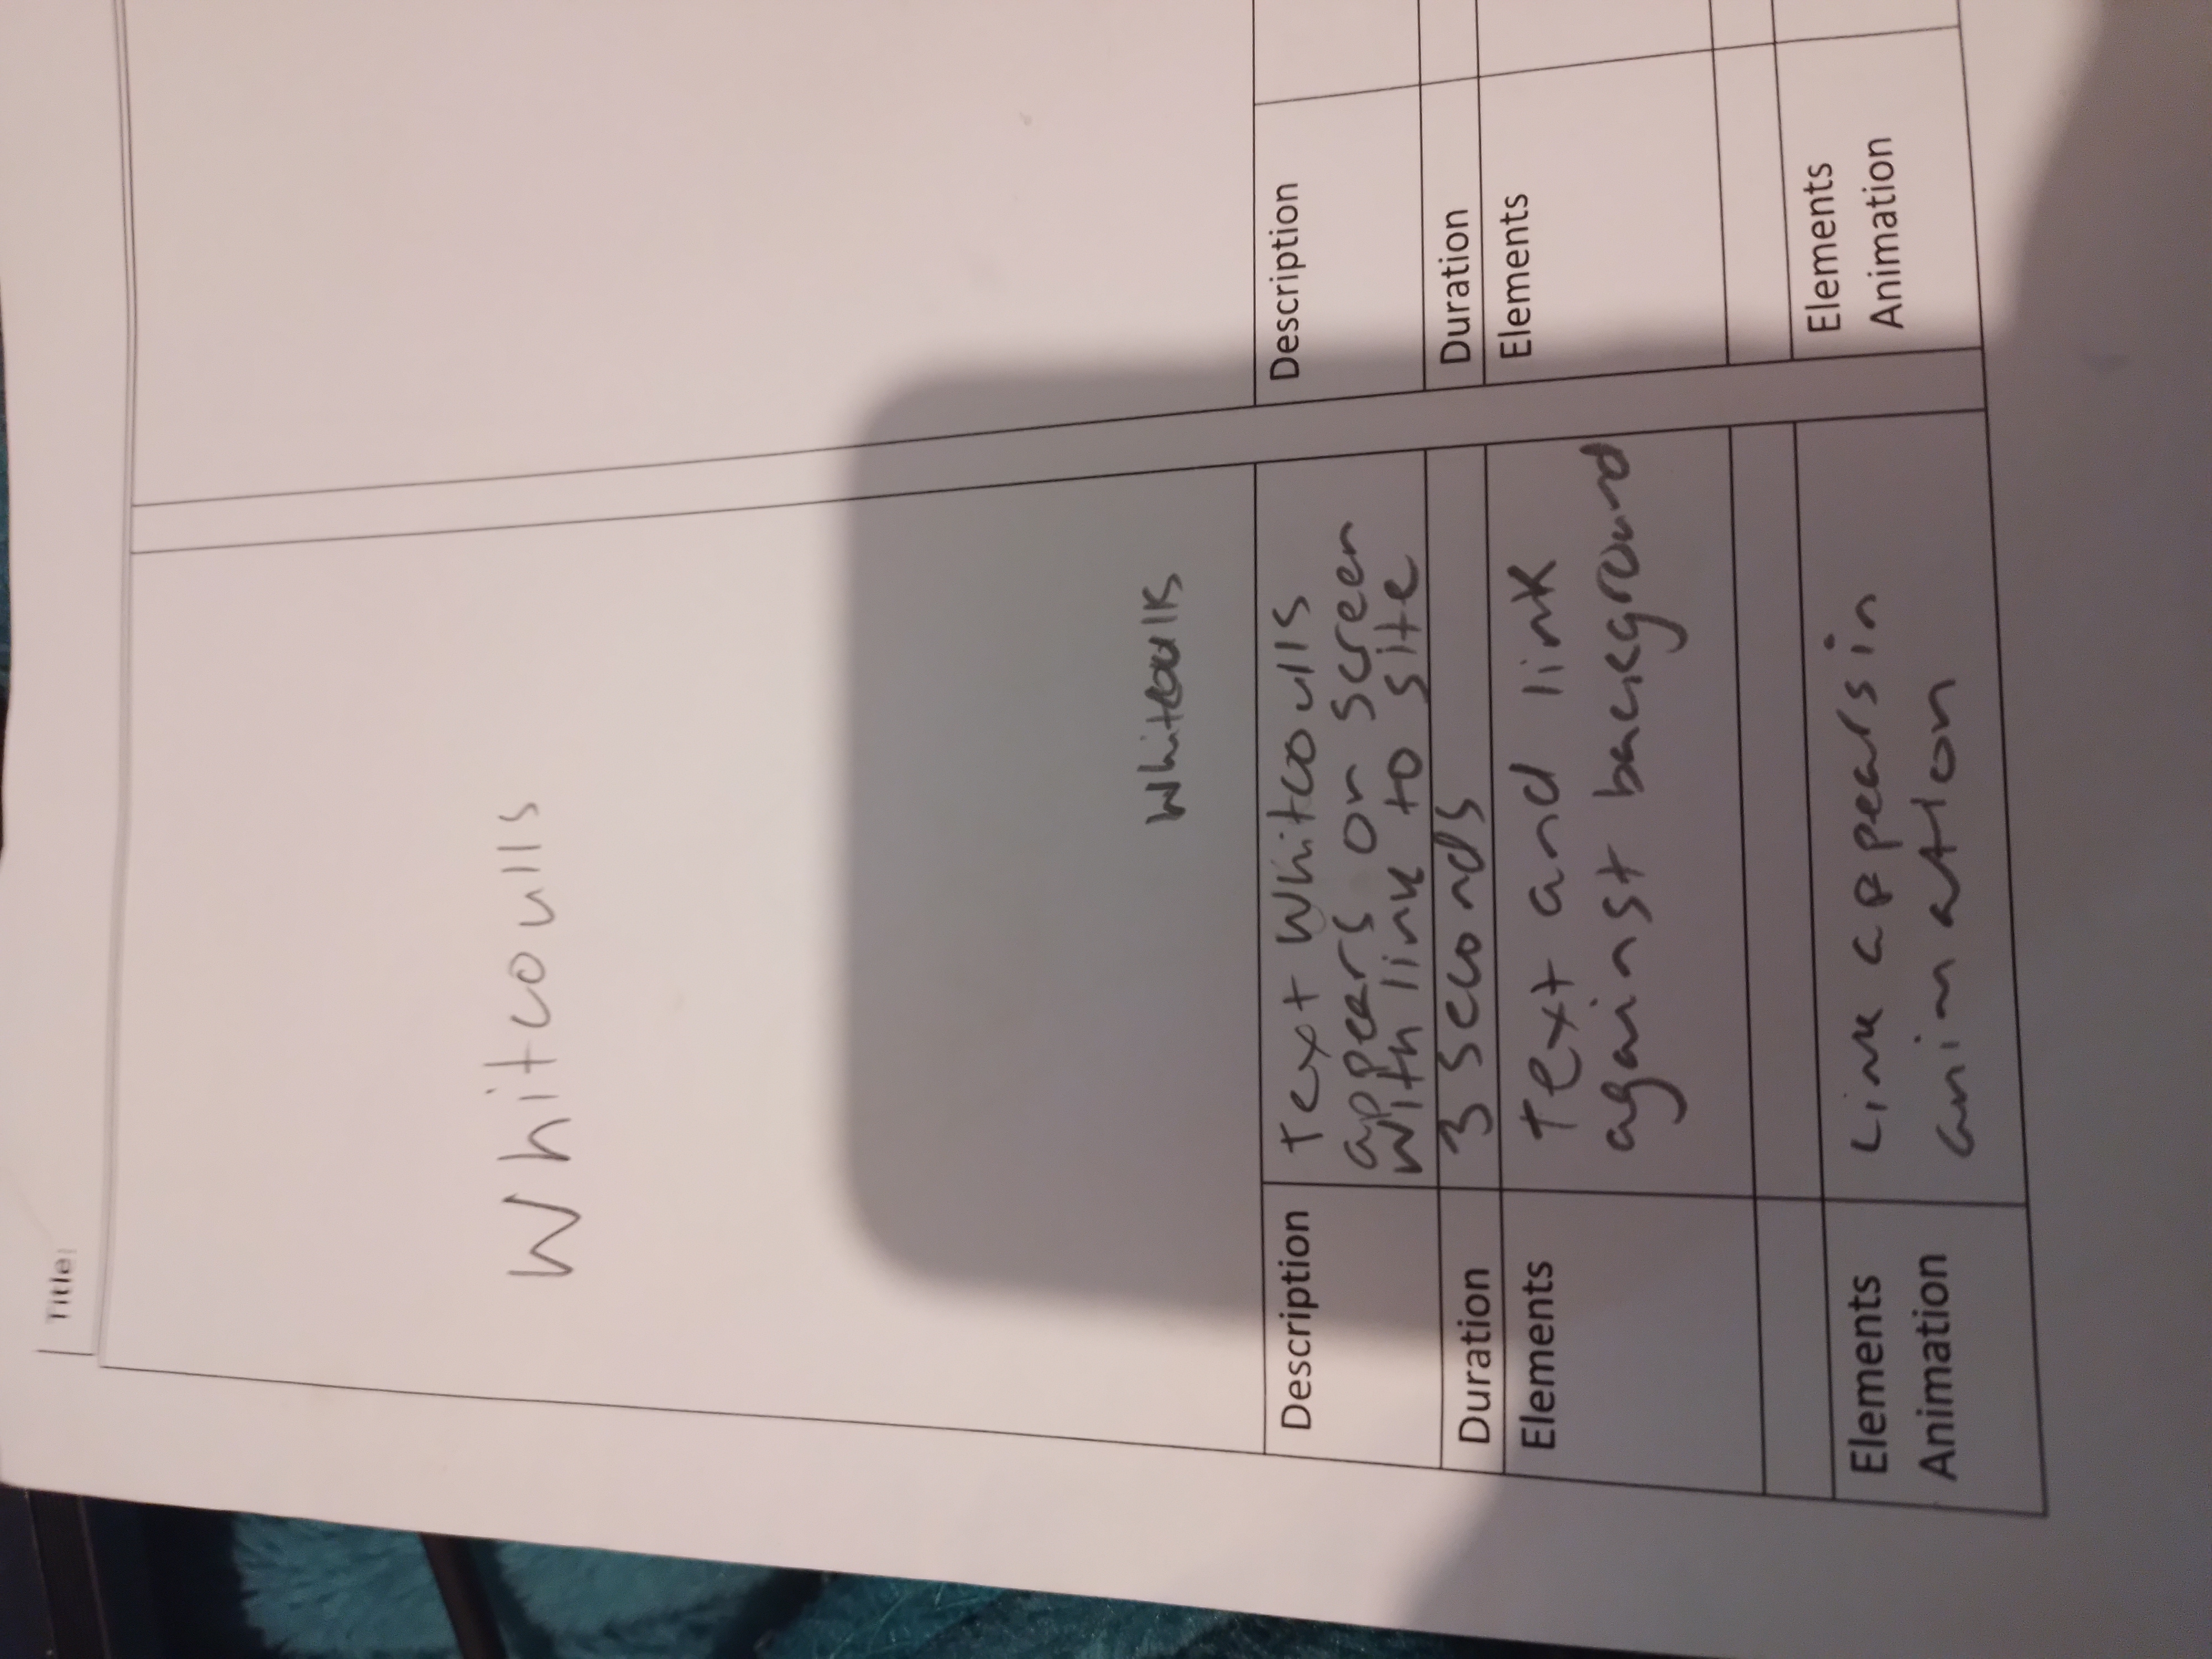 Title:
Whitcoulls
Whitcoulls
Description
Text Whitcoulls
appears on screen
with link to site
Duration
3 seconds
Elements
Text and link
against background
Elements
Animation
Link appears in
animation
Description
Duration
Elements
Elements
Animation